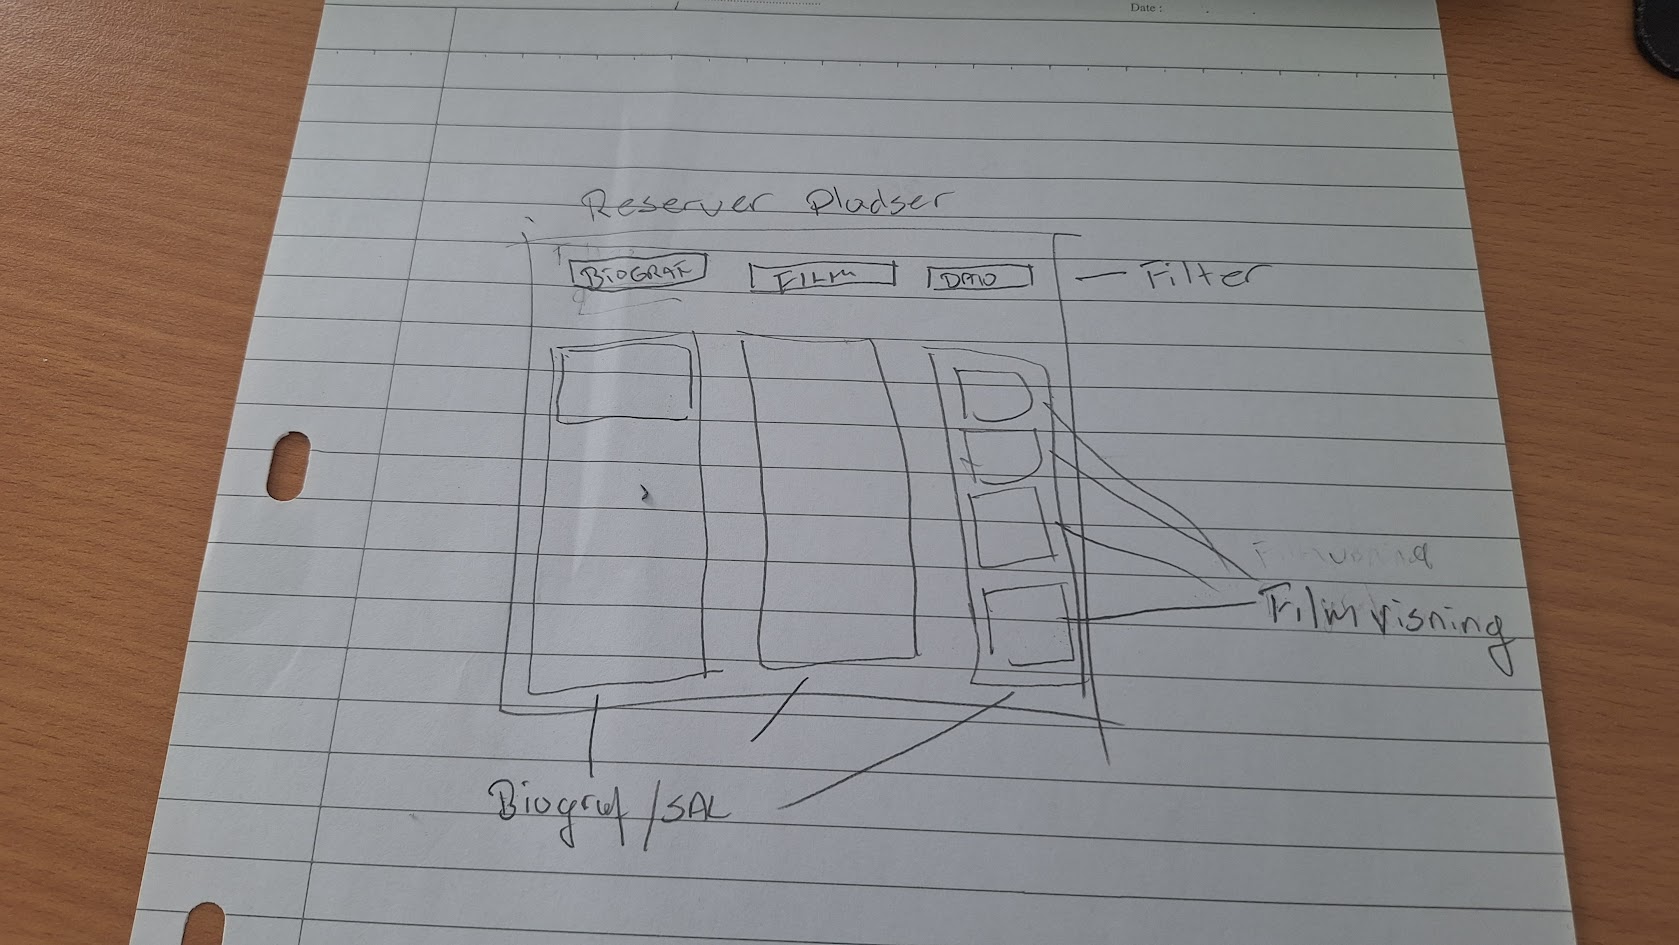 Date :
Reserver Pladser
BIOGRAF FILM DATO Filter
Filmvisning
Biograf/SAL